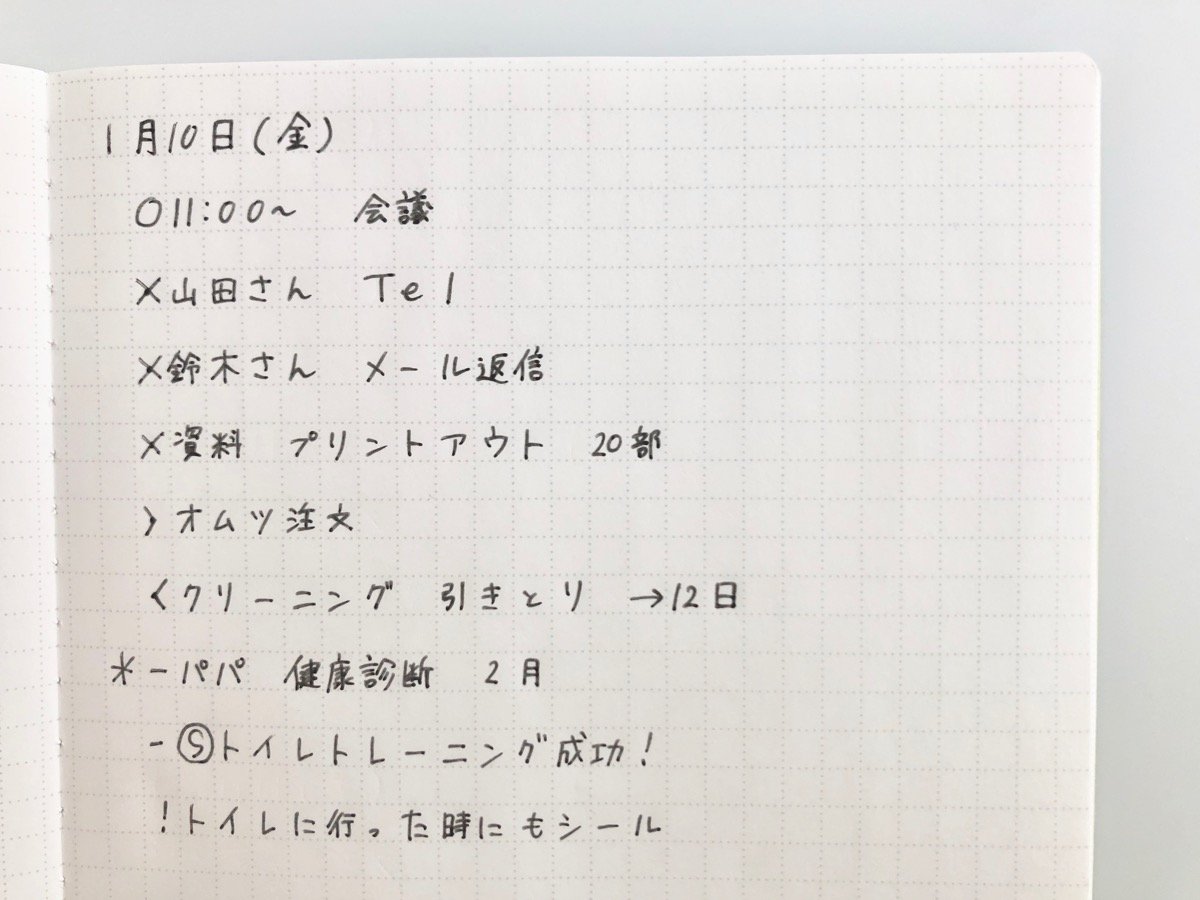 1月10日(金)
○11:00〜 会議
×山田さん Tel
×鈴木さん メール返信
×資料 プリントアウト 20部
〉オムツ注文
〈クリーニング 引きとり →12日
*-パパ 健康診断 2月
-Ⓢトイレトレーニング成功!
!トイレに行った時にもシール